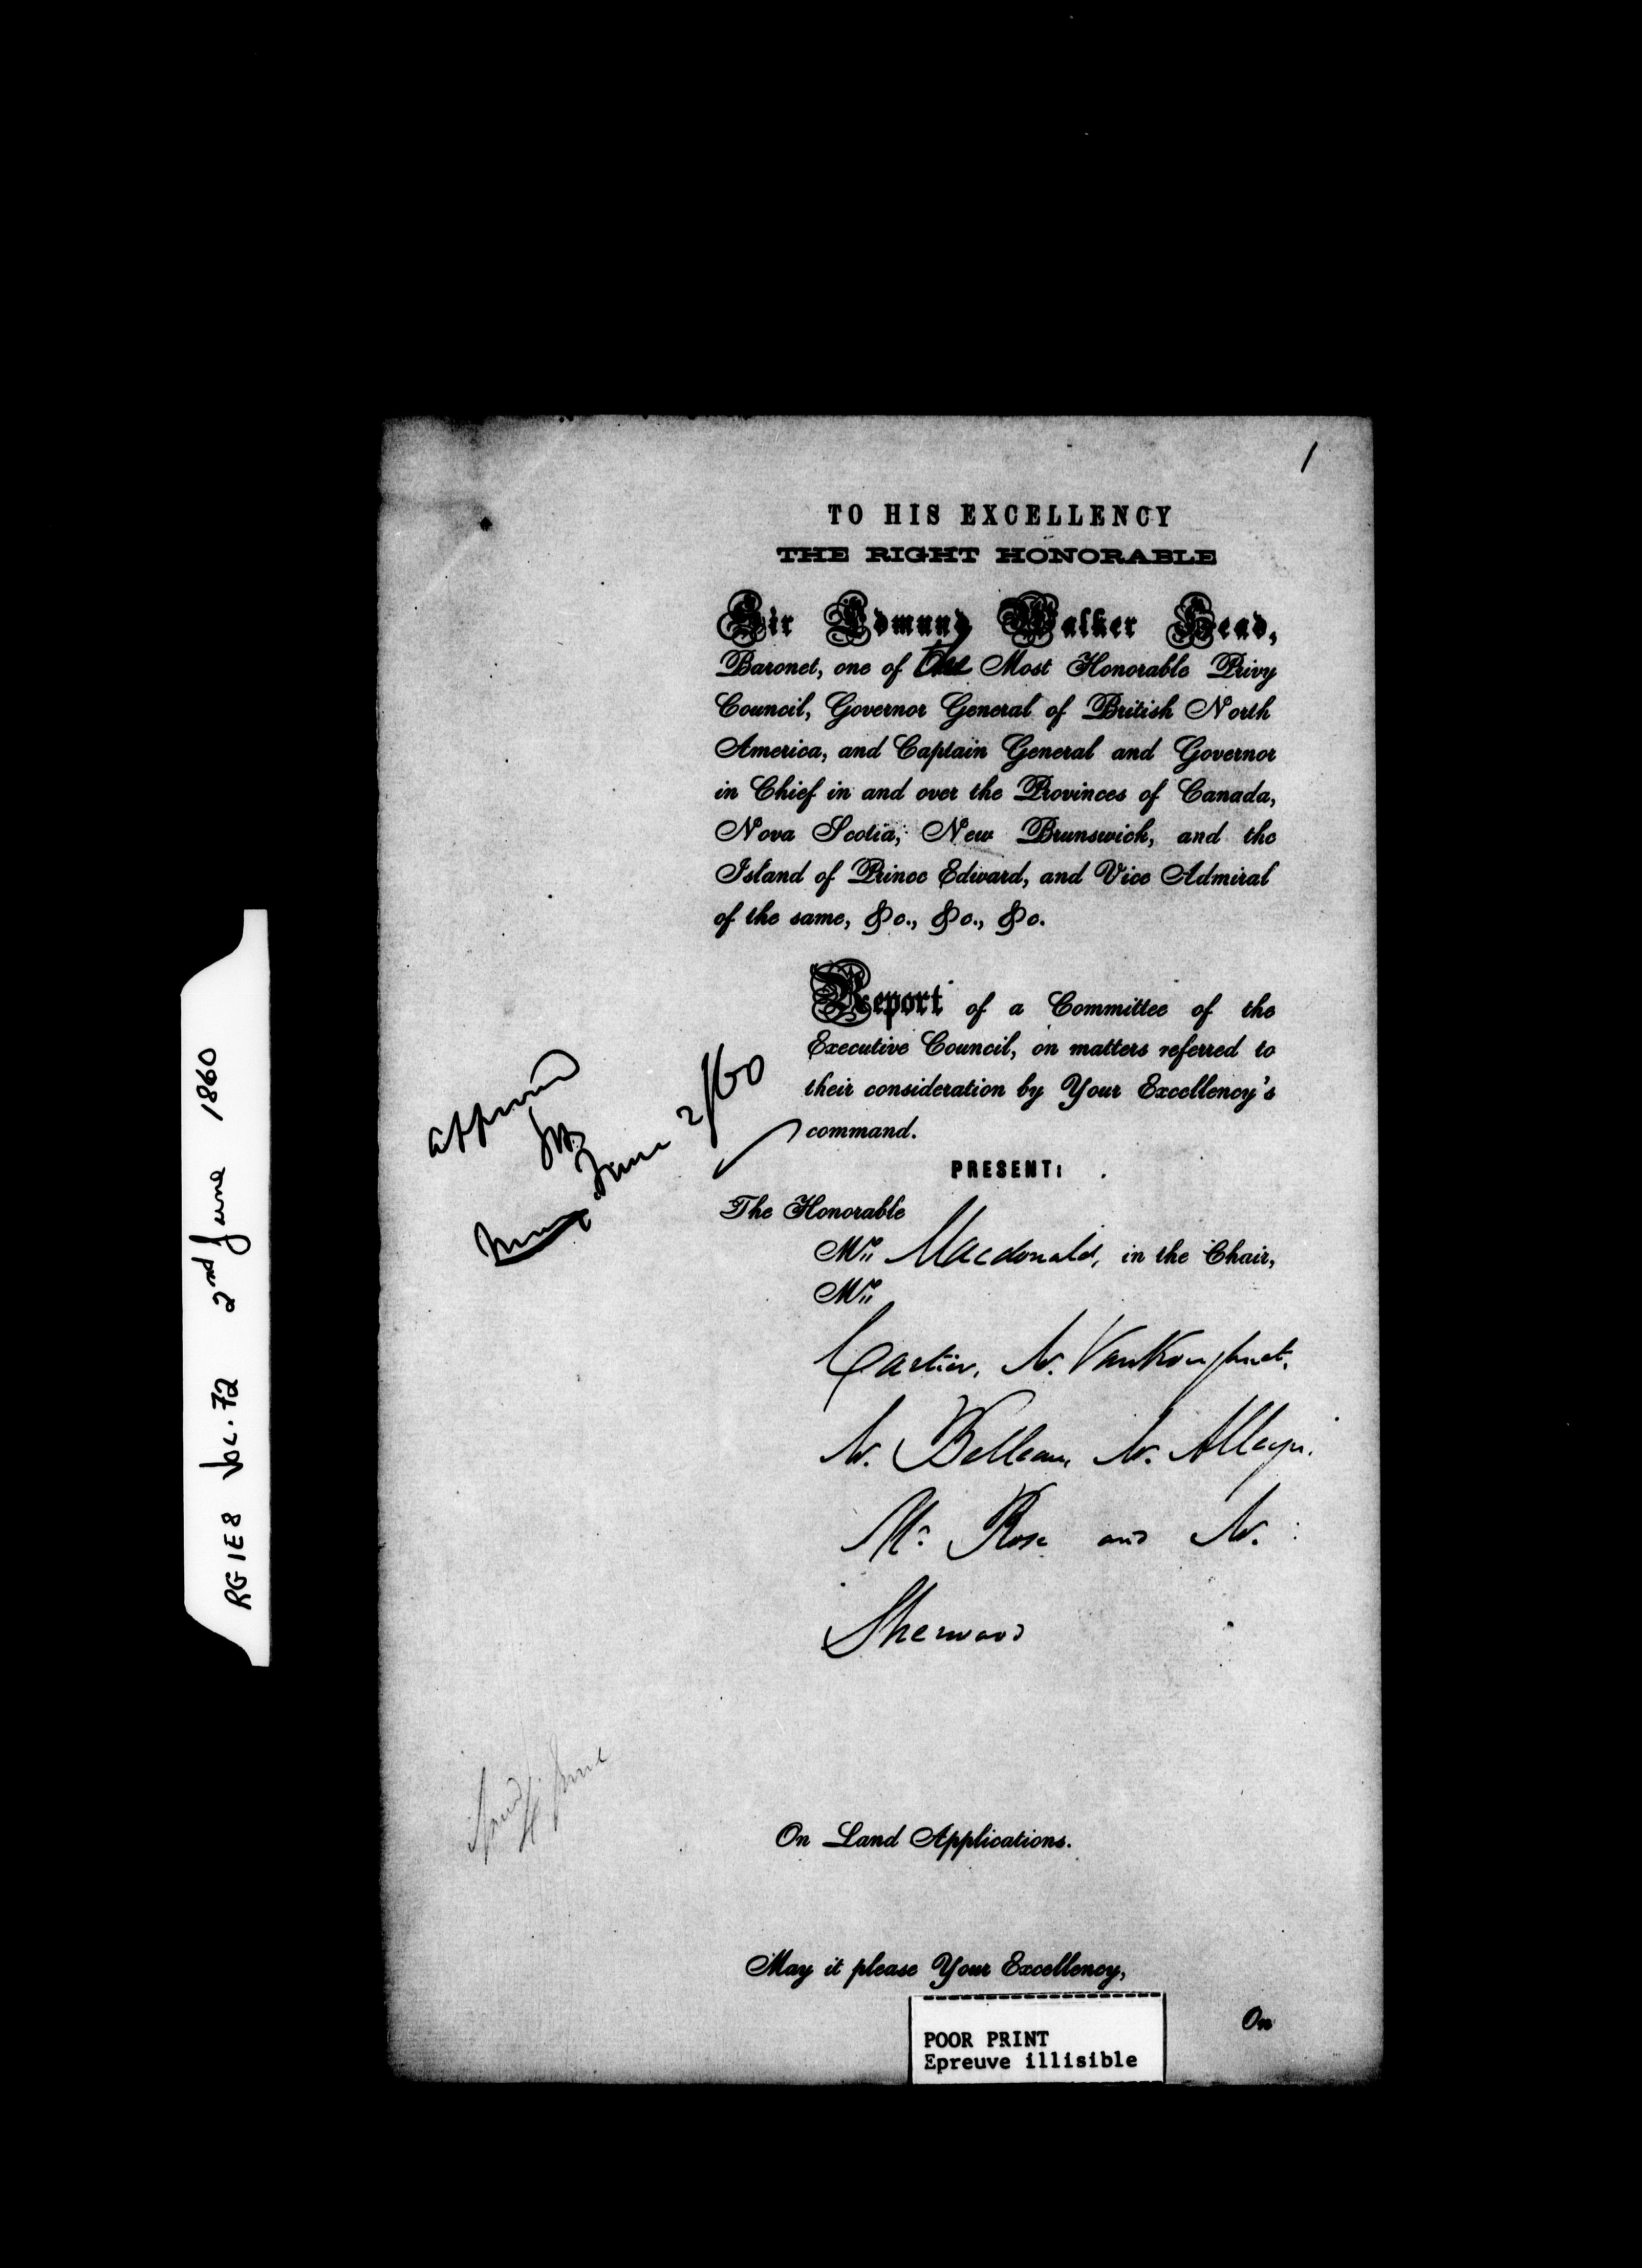 RG1E8 Vol. 72 2nd June 1860
1
TO HIS EXCELLENCY
THE RIGHT HONORABLE
Sir Edmund Walker Head,
Baronet, one of the Most Honorable Privy
Council, Governor General of British North
America, and Captain General and Governor
in Chief in and over the Provinces of Canada,
Nova Scotia, New Brunswick, and the
Island of Prince Edward, and Vice Admiral
of the same, &c., &c., &c.
Report of a Committee of the
Executive Council, on matters referred to
their consideration by Your Excellency's
command.
approved
June 2/60
PRESENT:
The Honorable
Mr. Macdonald, in the Chair,
Mr.
Cartier, Mr. VanKoughnet.
Mr. Belleau, Mr. Alleyn.
Mr. Rose and Mr.
Sherwood
June
On Land Applications.
May it please Your Excellency,
On
POOR PRINT
Epreuve illisible